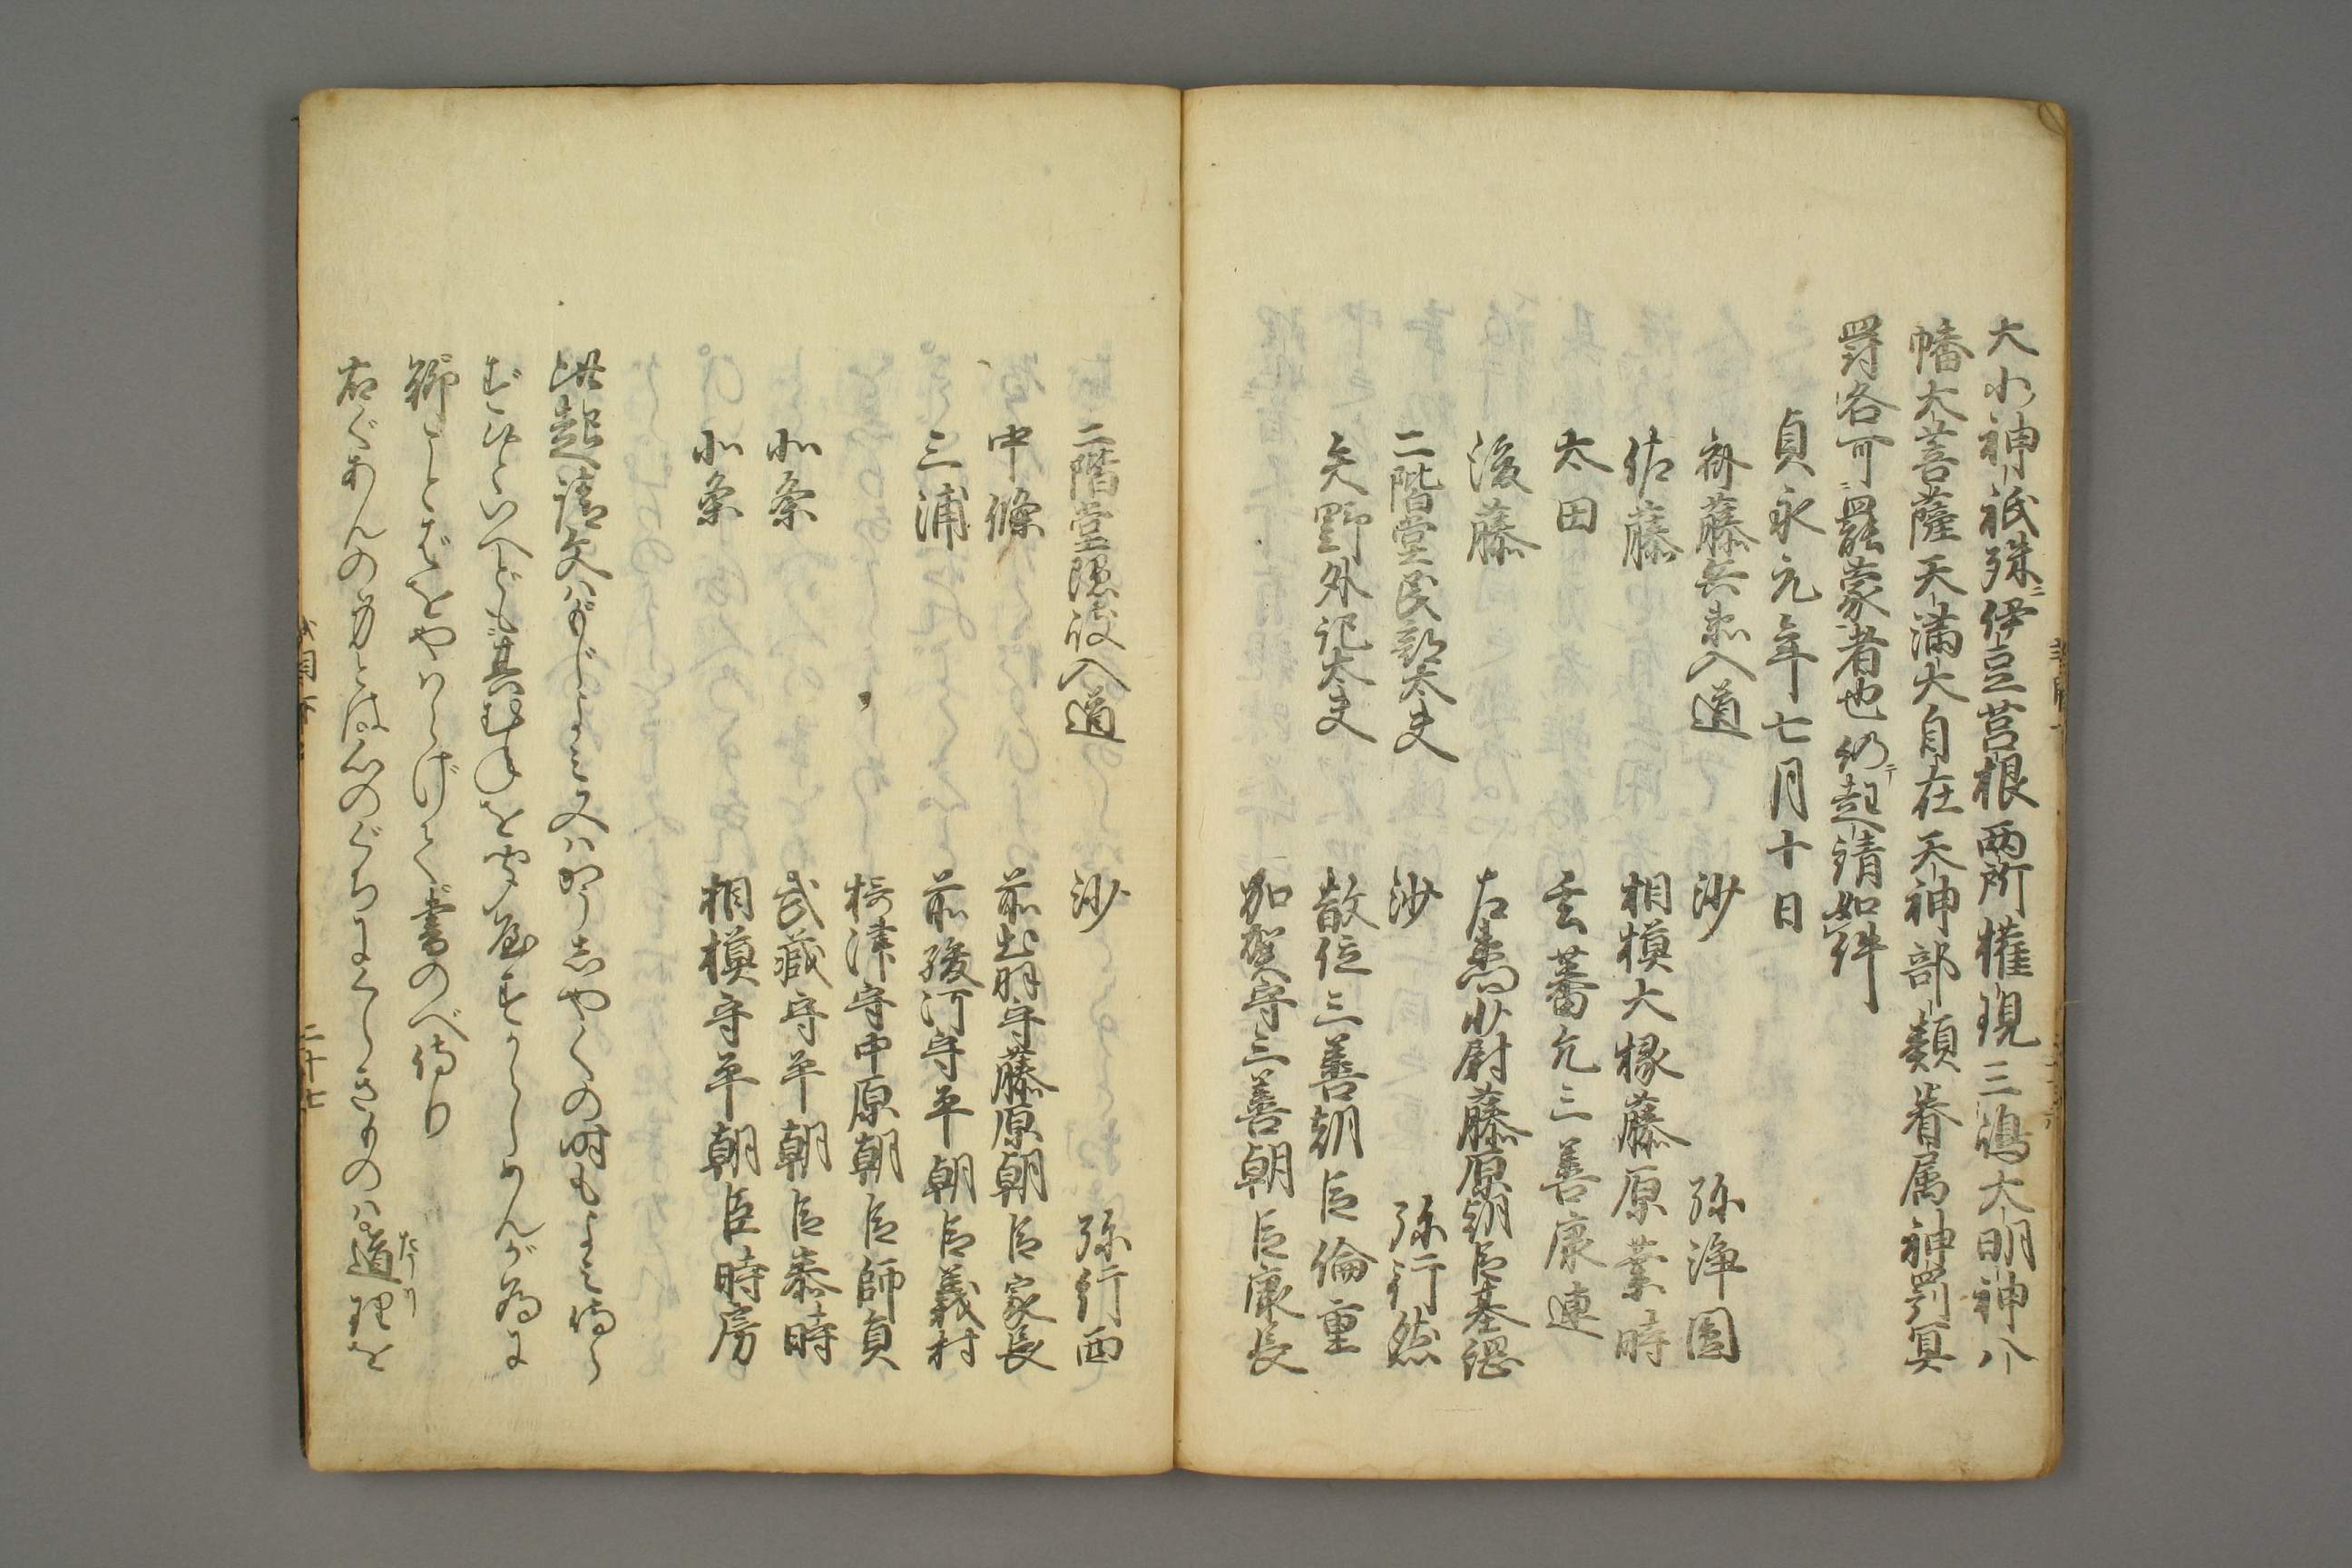 大小神祇殊ニ伊豆筥根両所権現三嶋大明神八
幡大菩薩天満大自在天神部類眷属神罰冥
罸各可罷蒙者也仍テ起請如件
貞永元年七月十日
斎藤兵衛入道 沙 弥浄圓
佐藤 相模大掾藤原業時
太田 玄蕃允三善康連
後藤 左衛門少尉藤原朝臣基綱
二階堂民部太夫 沙 弥行然
矢野外記太夫 散位三善朝臣倫重
加賀守三善朝臣康長
二階堂隠岐入道 沙 弥行西
中條 前出羽守藤原朝臣家長
三浦 前駿河守平朝臣義村
摂津守中原朝臣師員
北条 武蔵守平朝臣泰時
北条 相模守平朝臣時房
此起請文ハ
御ことばをやハらげて書のべ侍り
右ぐあんの身とは心のぐちにくらきものハ道理を
たうり
二十七